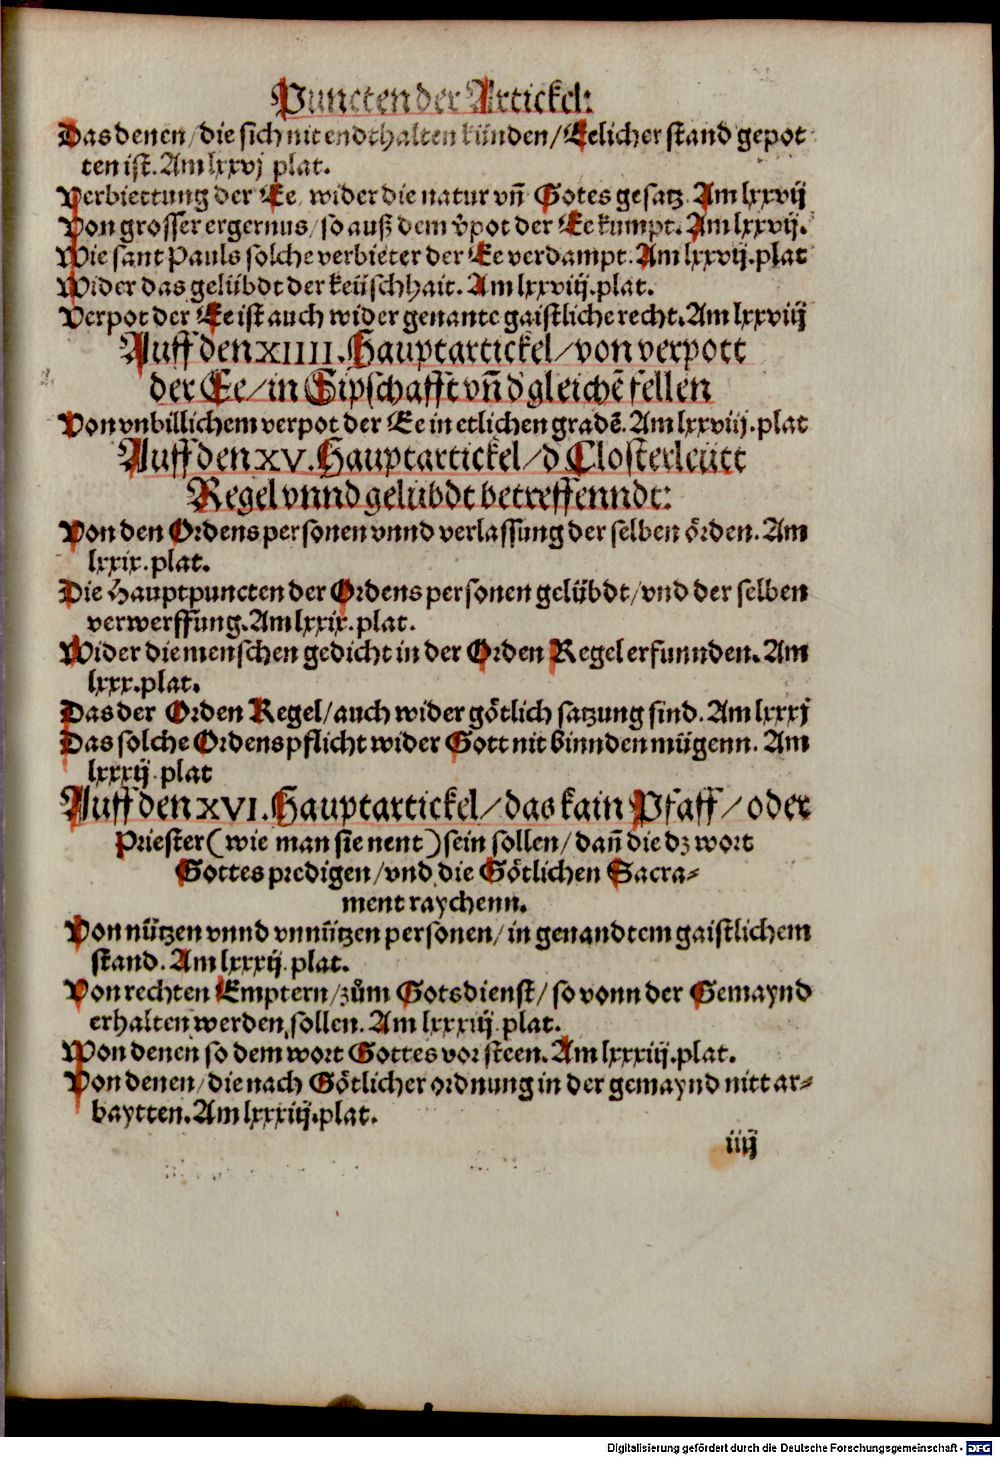 Puncten der Artickel:
Das denen / die sich nit endthalten künden / Eelicher stand gepot
ten ist. Am lxxvj plat.
Verbiettung der Ee, wider die natur vñ Gotes gesatz. Am lxxvij
Von grosser ergernus / so auß dem v̊pot der Ee kumpt. Am lxxvij.
Wie sant Pauls solche verbieter der Ee verdampt. Am lxxvij. plat
Wider das gelübdt der keüschhait. Am lxxviij. plat.
Verpot der Ee ist auch wider genante gaistliche recht. Am lxxviij
Auff den XIIII. Hauptartickel / von verpott
der Ee / in Sipschafft vñ d̕ gleichẽ fellen
Von vnbillichem verpot der Ee in etlichen gradẽ. Am lxxviij. plat
Auff den XV. Hauptartickel / d̕ Closterleütt
Regel vnnd gelübdt betreffenndt:
Von den Ordens personen vnnd verlassung der selben örden. Am
lxxix. plat.
Die Hauptpuncten der Ordens personen gelübdt / vnd der selben
verwerffung. Am lxxix. plat.
Wider die menschen gedicht in der Orden Regel erfunnden. Am
lxxx. plat.
Das der Orden Regel / auch wider götlich satzung sind. Am lxxxj
Das solche Ordens pflicht wider Gott nit binnden mügenn. Am
lxxxij. plat
Auff den XVI. Hauptartickel / das kain Pfaff / oder
Priester ( wie man sie nent ) sein sollen / dañ die dz wort
Gottes predigen / vnd die Götlichen Sacra-
ment raychenn.
Von nützen vnnd vnnützen personen / in genandtem gaistlichem
stand. Am lxxxij. plat.
Von rechten Emptern / zům Gotsdienst / so vonn der Gemaynd
erhalten werden sollen. Am lxxxiij. plat.
Von denen so dem wort Gottes vor steen. Am lxxxiij. plat.
Von denen / die nach Götlicher ordnung in der gemaynd nitt ar-
baytten. Am lxxxiij. plat.
iiij
Digitalisierung gefördert durch die Deutsche Forschungsgemeinschaft - DFG